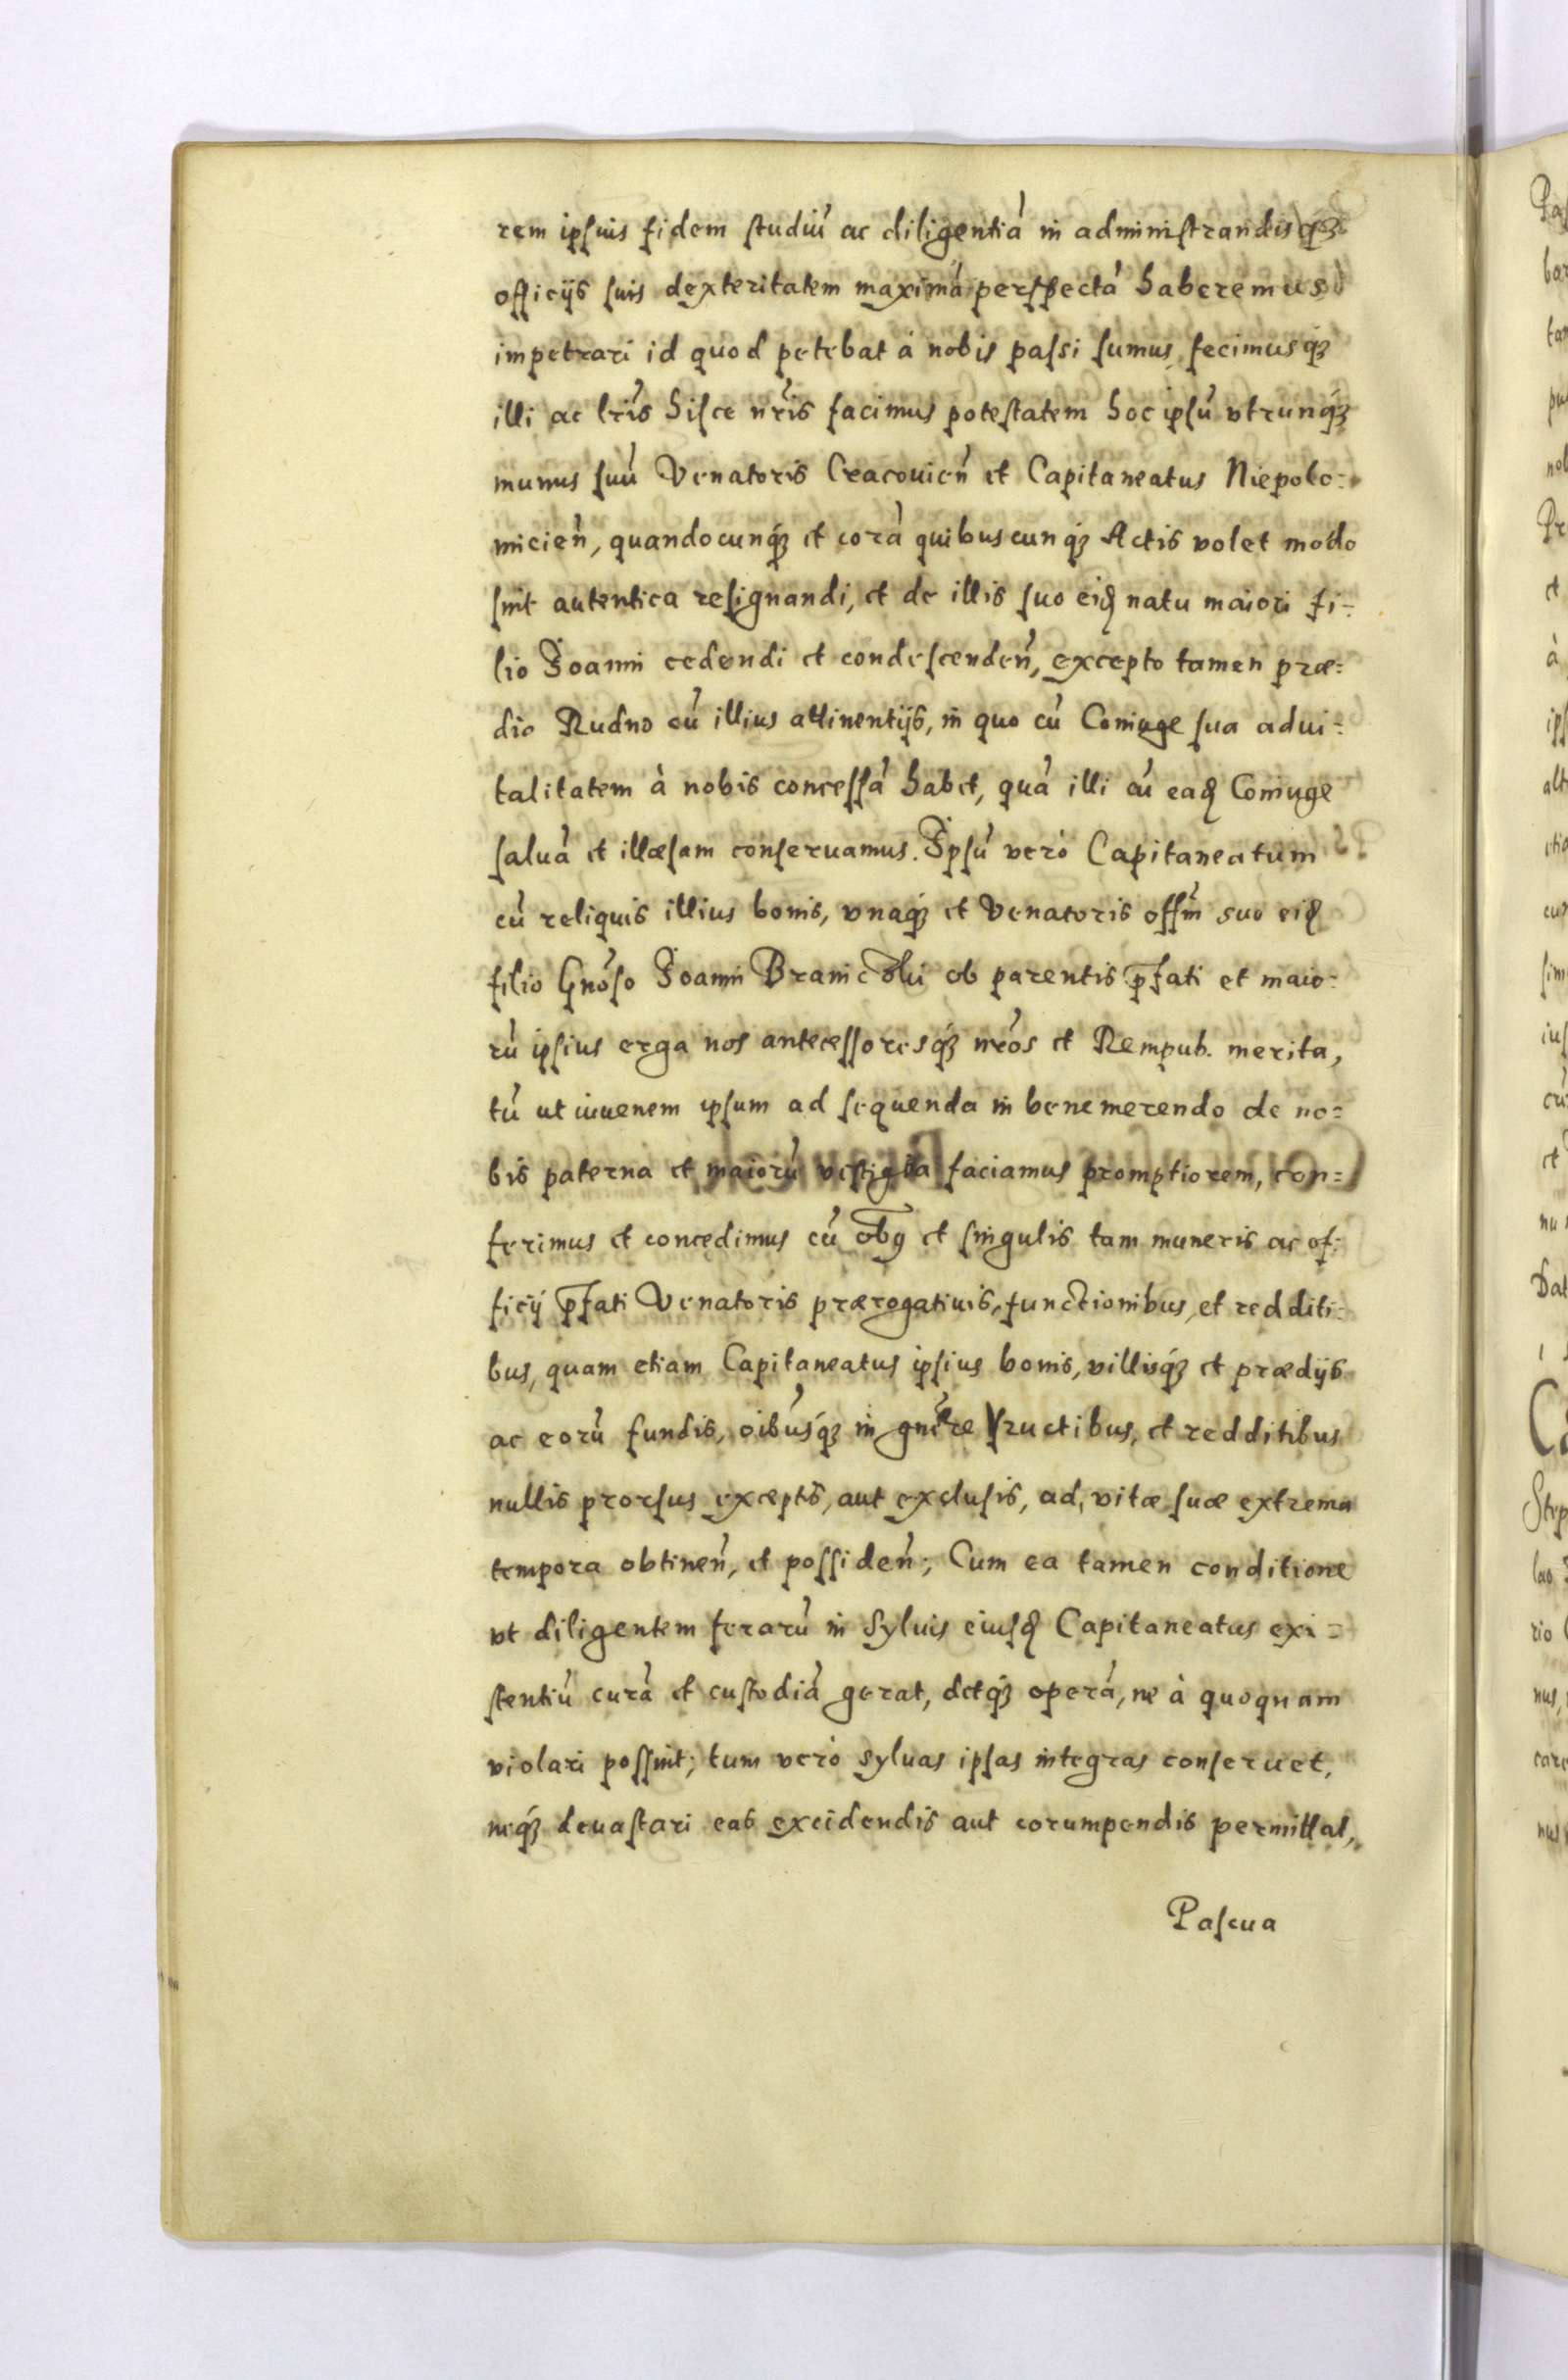 rem ipsius fidem studiũ ac diligentiã in administrandisqꝫ
officijs suis dexteritatem maximã perspectã haberemus
impetrari id quod petebat à nobis passi sumus, fecimusqꝫ
illi ac lr̃is hisce nr̃is facimus potestatem hoc ipsũ vtrunqꝫ
munus suũ Venatoris Cracovieñ et Capitaneatus Niepolo=
micieñ, quandocunqꝫ et corã quibuscunqꝫ Actis volet modo
sint autentica resignandi, et de illis suo eidꝫ natu maiori fi=
lio Joanni cedendi et condescendeñ, excepto tamen præ=
dio Rudno cũ illius attinentijs, in quo cũ Coniuge sua advi=
talitatem à nobis concessã habet, quã illi cũ eadꝫ Coniuge
salvã et illæsam conservamus. Ipsũ verò Capitaneatum
cũ reliquis illius bonis, vnaqꝫ et Venatoris offm̃ suo eidꝫ
filio Gñoso Joanni Branic̃ki ob parentis p̃fati et maio=
rũ ipsius erga nos antecessoresqꝫ nr̃os et Rempub. merita,
tũ ut iuvenem ipsum ad sequenda in benemerendo de no=
bis paterna et maiorũ vestigia faciamus promptiorem, con=
ferimus et concedimus cũ o͠ibꝯ et singulis tam muneris ac of=
ficij p̃fati Venatoris prærogativis, functionibus, et redditi=
bus, quam etiam Capitaneatus ipsius bonis, villisqꝫ et prædijs
ac eorũ fundis, oĩbusqꝫ in gñere fructibus, et redditibus
nullis prorsus exceptis, aut exclusis, ad, vitæ suæ extrema
tempora obtineñ, et possideñ; Cum ea tamen conditione
vt diligentem ferarũ in Sylvis eiusdꝫ Capitaneatus exi=
stentiũ curã et custodiã gerat, detqꝫ operã, ne à quoquam
violari possint; tum verò sylvas ipsas integras conservet,
neqꝫ devastari eas excidendis aut corumpendis permittat,
Pascua